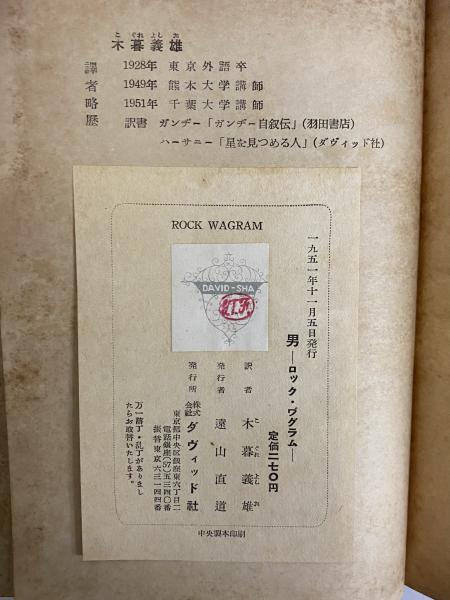 こぐれよしお
木暮義雄
譯者略歴
1928年 東京外語卒
1949年 熊本大学講師
1951年 千葉大学講師
訳書 ガンヂー「ガンヂー自叙伝」(羽田書店)
ハーサニー「星を見つめる人」(ダヴィッド社)
ROCK WAGRAM
DAVID-SHA
一九五一年十一月五日発行
男―ロック・ワグラム―
定価二七〇円
訳者 木暮義雄
こぐれよしお
発行者 遠山直道
発行所 株式会社 ダヴィッド社
東京都中央区銀座東六丁目二
電話銀座(57)五三四〇番
振替東京六三一四四番
万一落丁・乱丁がありまし
たらお取替いたします。
中央製本印刷